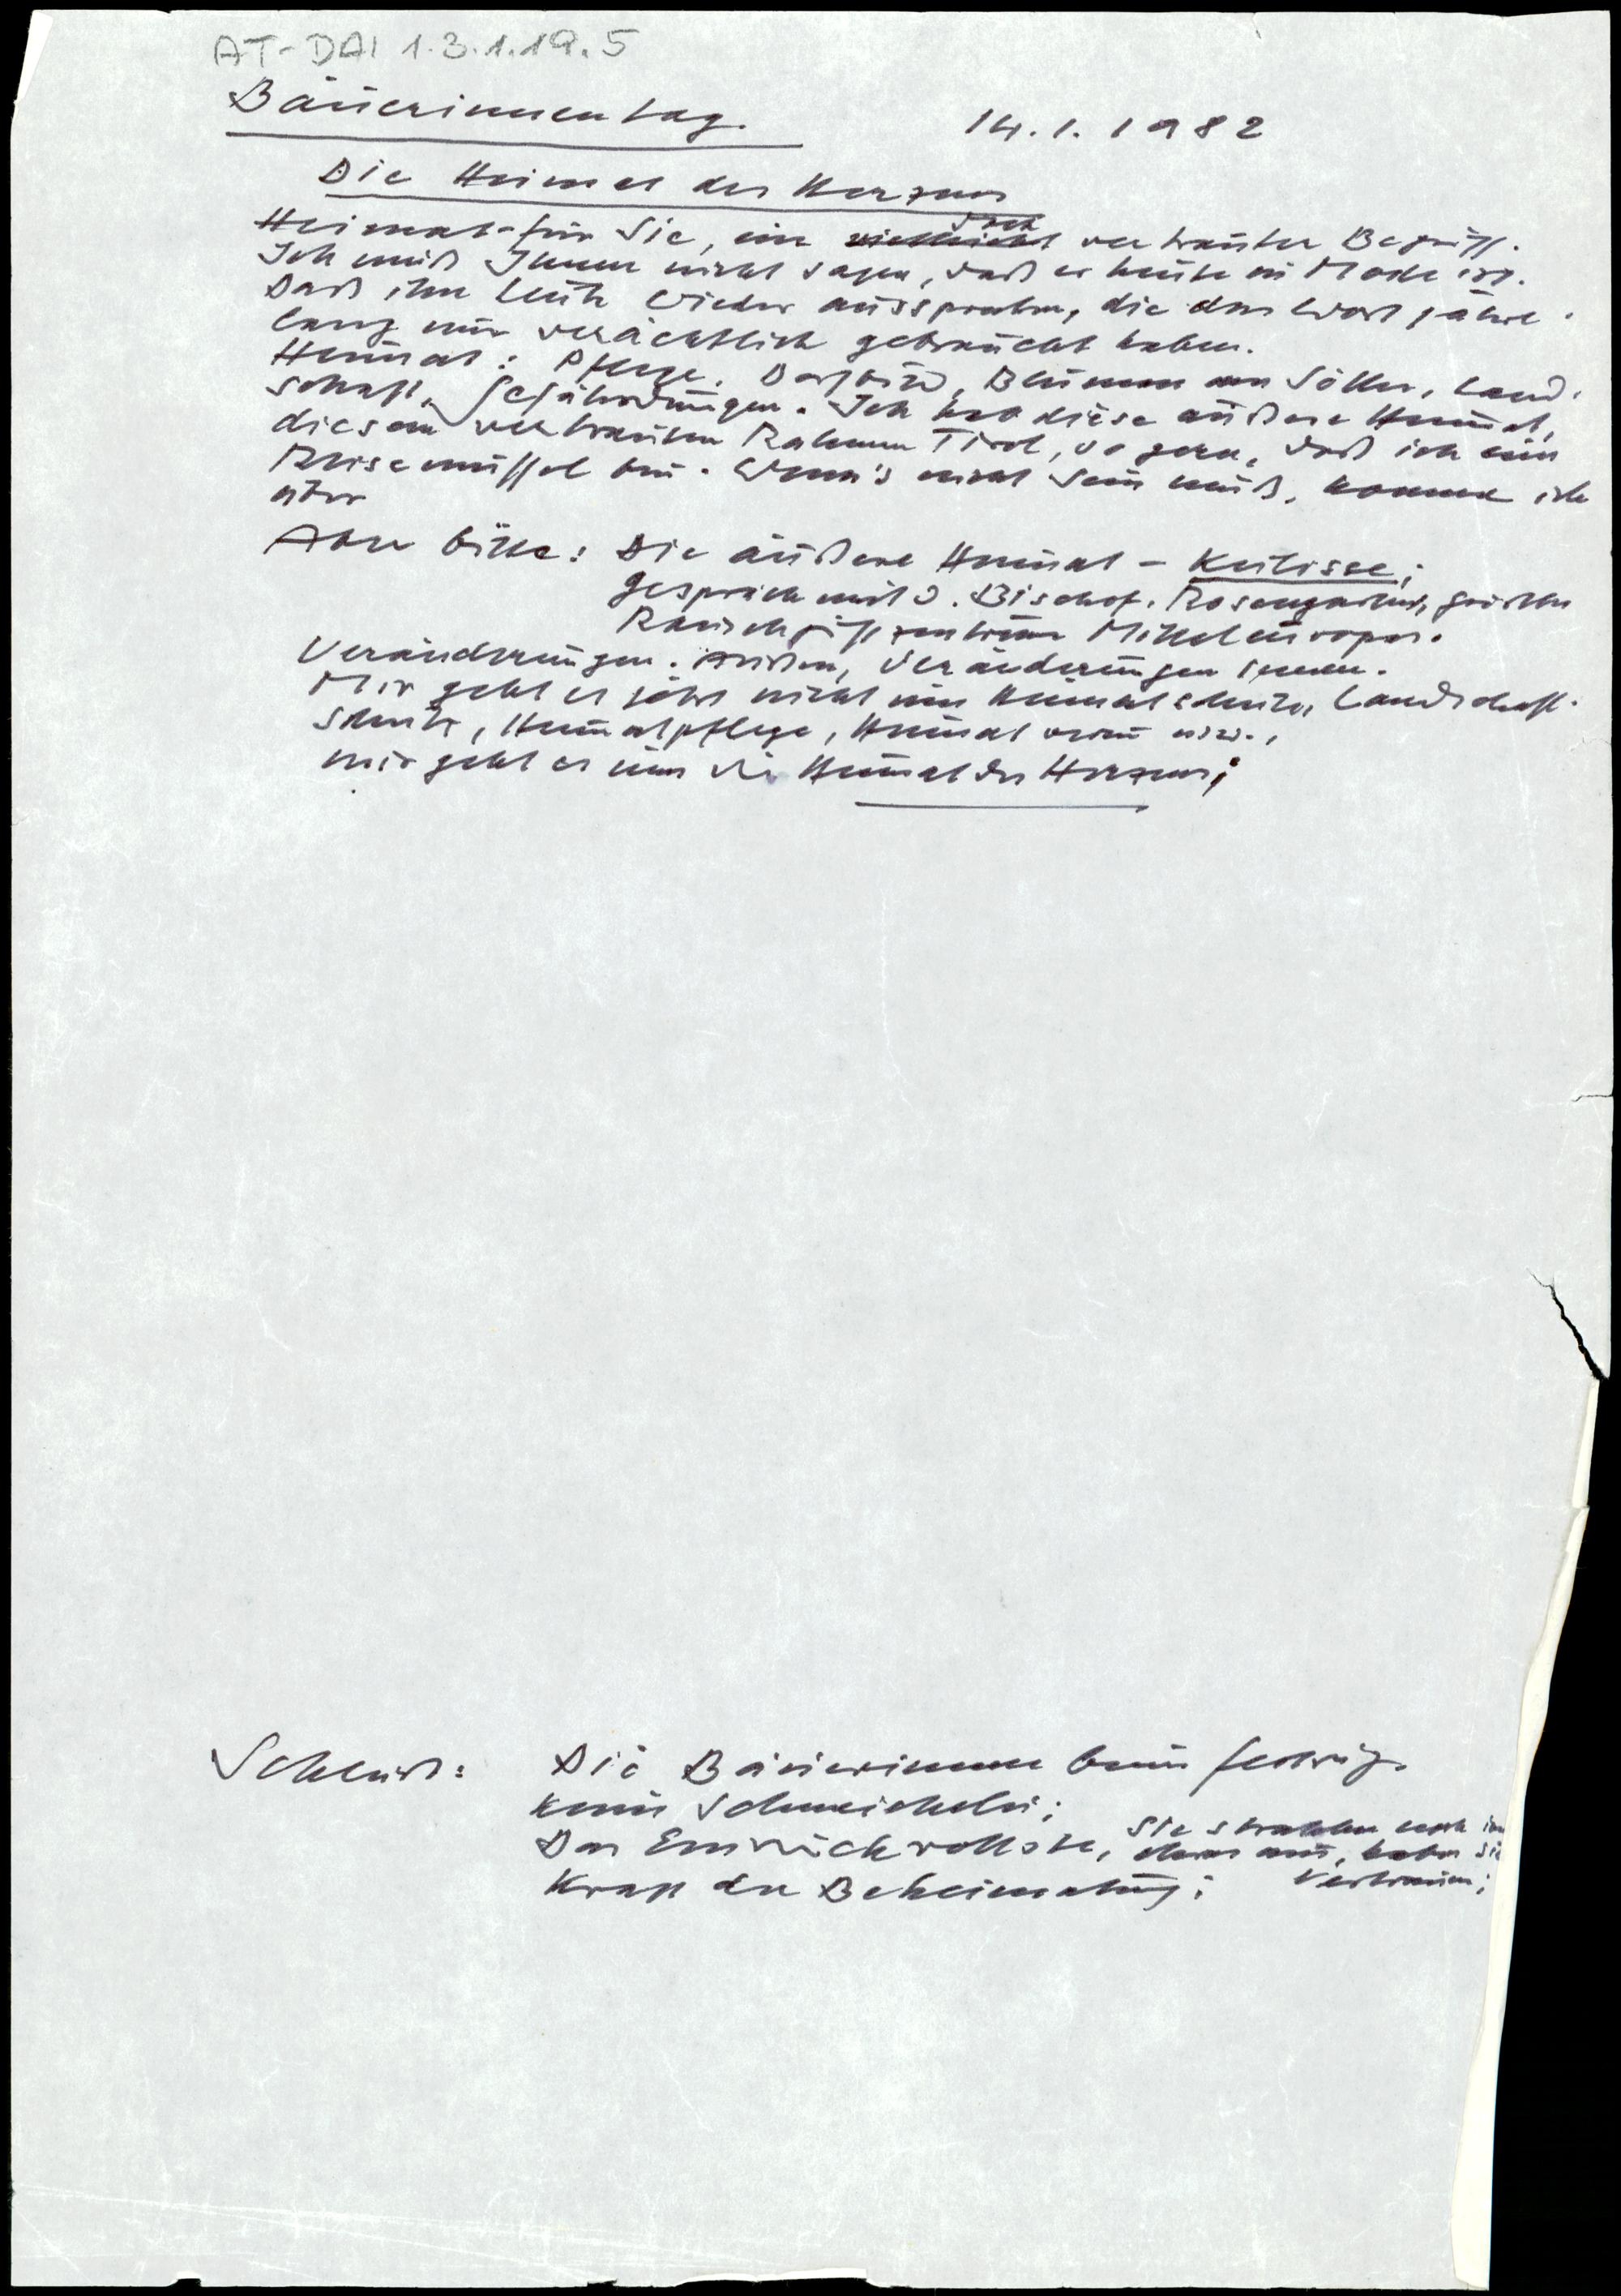 AT-DAI 1.3.1.19.5
Bäuerinnentag. 14.1.1982
Die Heimat des Herzens
Heimat - für Sie, ein vielleicht noch vertrauter Begriff.
Ich muß Ihnen nicht sagen, daß er heute in Mode ist.
Daß ihn Leute wieder aussprechen, die das Wort jahre-
lang nur verächtlich gebraucht haben.
Heimat: Pflege. Dorfbild, Blumen am Söller, Land-
schaft, Gefährdungen. Ich hab diese äußere Heimat,
diesen vertrauten Rahmen Tirol, so gern, daß ich ein
Reisemuffel bin. Wenn's nicht sein muß, komme ich
Aber bitte: Die äußere Heimat - Kulisse;
Gespräch mit d. Bischof. Rosengarten, größtes
Rauschgiftzentrum Mitteleuropas.
Veränderungen. Außen, Veränderungen innen.
Mir geht es jetzt nicht um Heimatschutz, Landschaft-
schutz, Heimatpflege, Heimat usw.,
mir geht es um die Heimat des Herzens;
Schluß: Die Bäuerinnen beim Festzug.
keine Schmeichelei;
Das Eindruckvollste, Sie strahlen noch
etwas aus, haben Sie
Kraft der Beheimatung; Vertrauen;